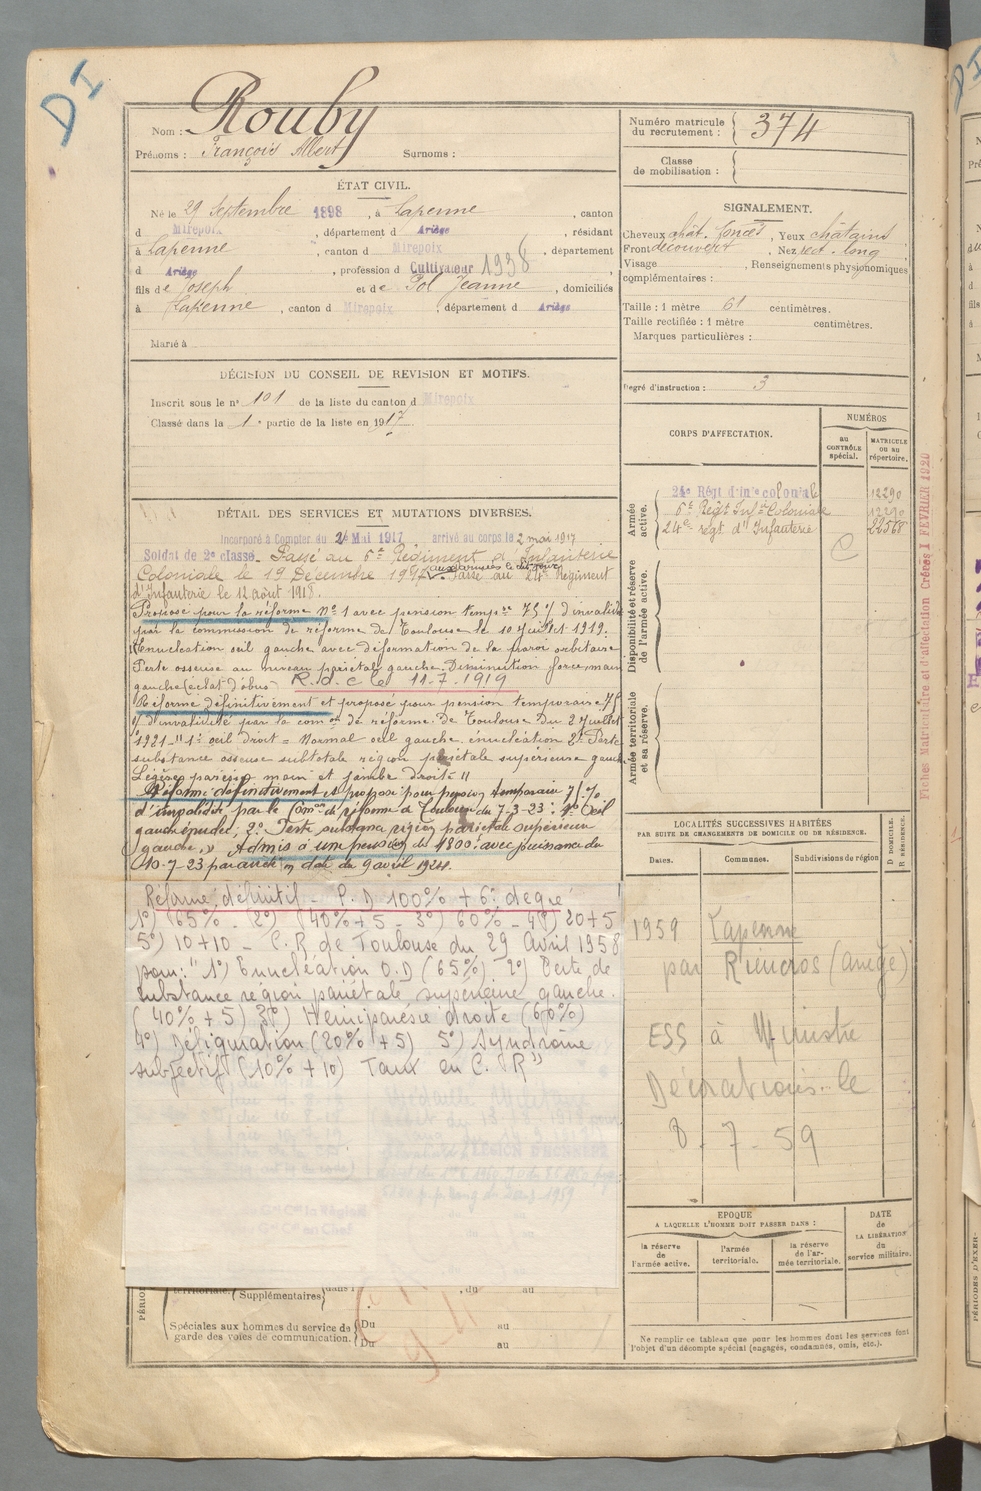 DI
Nom : Rouby
Prénoms : François Albert Surnoms :
Numéro matricule
du recrutement : 374
Classe
de mobilisation :
ÉTAT CIVIL.
Né le 29 Septembre 1898, à Lapenne, canton
d Mirepoix, département d Ariège, résidant
à Lapenne, canton d Mirepoix, département
d Ariège, profession d Cultivateur 1938
fils de Joseph et de Pol Jeanne, domiciliés
à Lapenne, canton d Mirepoix, département d Ariège
Marié à
SIGNALEMENT.
Cheveux chât. foncés, Yeux châtains
Front découvert, Nez rect. long
Visage , Renseignements physionomiques
complémentaires :
Taille : 1 mètre 61 centimètres.
Taille rectifiée : 1 mètre centimètres.
Marques particulières :
Degré d'instruction : 3
DÉCISION DU CONSEIL DE REVISION ET MOTIFS.
Inscrit sous le n° 101 de la liste du canton d Mirepoix
Classé dans la 1e partie de la liste en 1917.
CORPS D'AFFECTATION.
NUMÉROS
au
CONTRÔLE
spécial.
MATRICULE
OU AU
répertoire.
Armée
active.
24e Régt d'Infie coloniale 12290
6e Régt Infie Coloniale 12290
24e régt d'Infanterie 22568
C
Disponibilité et réserve
de l'armée active.
Armée territoriale
et sa réserve.
DÉTAIL DES SERVICES ET MUTATIONS DIVERSES.
Incorporé à Compter du 2 Mai 1917 arrivé au corps le 2 mai 1917
Soldat de 2e classe. Passé au 6e Régiment d'Infanterie
Coloniale le 19 Décembre 1917 aux armées le dit jour. Passé au 24e Régiment
d'Infanterie le 12 Août 1918.
Proposé pour la réforme N° 1 avec pension tempre 75% d'invalidité
par la commission de réforme de Toulouse le 10 Juillet 1919.
Enucléation œil gauche avec déformation de la paroi orbitaire
Perte osseuse au niveau pariétale gauche. Diminution force main
gauche (éclat d'obus) R.d.c le 11-7-1919
Réformé définitivement et proposé pour pension temporaire 75
% d'invalidité par la com on de réforme de Toulouse du 2 Juillet
1921 - "1° œil droit = Normal œil gauche énucléation 2° Perte
substance osseuse subtotale région pariétale supérieure gauche
Légère parésie main et jambe droite "
Réformé définitivement et proposé pour pension temporaire 75%
d'invalidité par la Comon de réforme de Toulouse du 7-3-23 : 1° Œil
gauche énuclé, 2° Perte substance région pariétale supérieure
gauche. » Admis à une pension de 1800f avec jouissance du
10-7-23 par arrêté en date du 9 avril 1924.
Réforme définitif - P.D 100% + 6° degré
1°) (65% - (2°) (40% + 5 - 3°) 60% - 4°) 20+5
5°) 10+10 - C.R de Toulouse du 29 Avril 1958
pour: "1°) Enucléation O.D (65%) 2°) Perte de
substance région pariétale supérieure gauche.
(40% + 5) 3°) Hémiparésie droite (60%)
4°) Défiguration (20% + 5) 5°) Syndrôme
subjectif (10% + 10) Taux en C.R"
LOCALITÉS SUCCESSIVES HABITÉES
PAR SUITE DE CHANGEMENTS DE DOMICILE OU DE RÉSIDENCE.
Dates. Communes. Subdivisions de région
D DOMICILE.
R RÉSIDENCE.
1959 Lapenne
par Rieucros (ariège)
ESS à Ministre
Décorations le
8-7-59
EPOQUE
A LAQUELLE L'HOMME DOIT PASSER DANS :
la réserve
de
l'armée active.
l'armée
territoriale.
la réserve
de l'ar-
mée territoriale.
DATE
de
LA LIBÉRATION
du
service militaire.
Ne remplir ce tableau que pour les hommes dont les services font
l'objet d'un décompte spécial (engagés, condamnés, omis, etc.).
territoriale. Supplémentaires dans l , du au
Spéciales aux hommes du service de
garde des voies de communication.
Du au
Du au
Fiches Matriculaire et d'affectation Créées 1 FEVRIER 1920